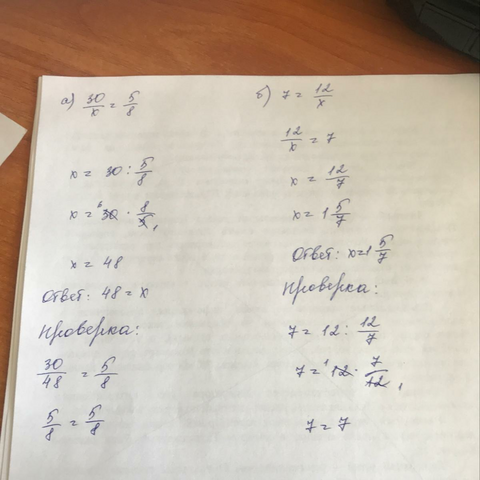 а) 30/x = 5/8
x = 30 : 5/8
x = ⁶30 · 8/5₁
x = 48
Ответ: 48 = x
Проверка:
30/48 = 5/8
5/8 = 5/8
б) 7 = 12/x
12/x = 7
x = 12/7
x = 1 5/7
Ответ: x=1 5/7
Проверка:
7 = 12 : 12/7
7 = ¹12 · 7/12₁
7 = 7